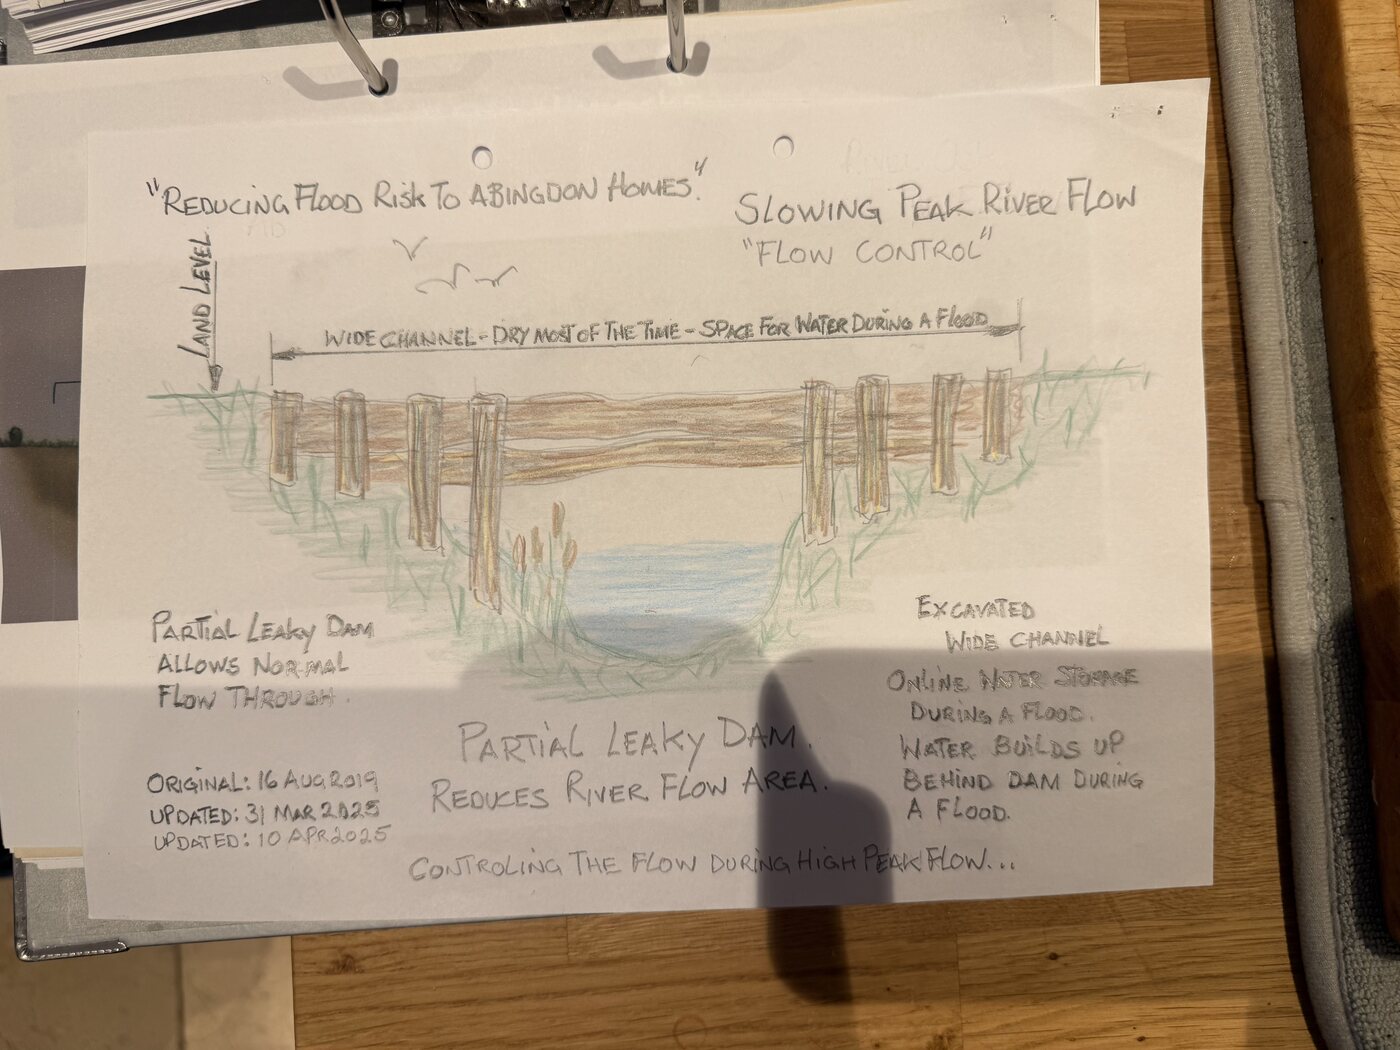 "REDUCING FLOOD RISK TO ABINGDON HOMES."
SLOWING PEAK RIVER FLOW
"FLOW CONTROL"
LAND LEVEL
WIDE CHANNEL - DRY MOST OF THE TIME - SPACE FOR WATER DURING A FLOOD
PARTIAL LEAKY DAM
ALLOWS NORMAL
FLOW THROUGH.
EXCAVATED
WIDE CHANNEL
ONLINE WATER STORAGE
DURING A FLOOD.
WATER BUILDS UP
BEHIND DAM DURING
A FLOOD.
PARTIAL LEAKY DAM.
REDUCES RIVER FLOW AREA.
ORIGINAL: 16 AUG 2019
UPDATED: 31 MAR 2025
UPDATED: 10 APR 2025
CONTROLING THE FLOW DURING HIGH PEAK FLOW...